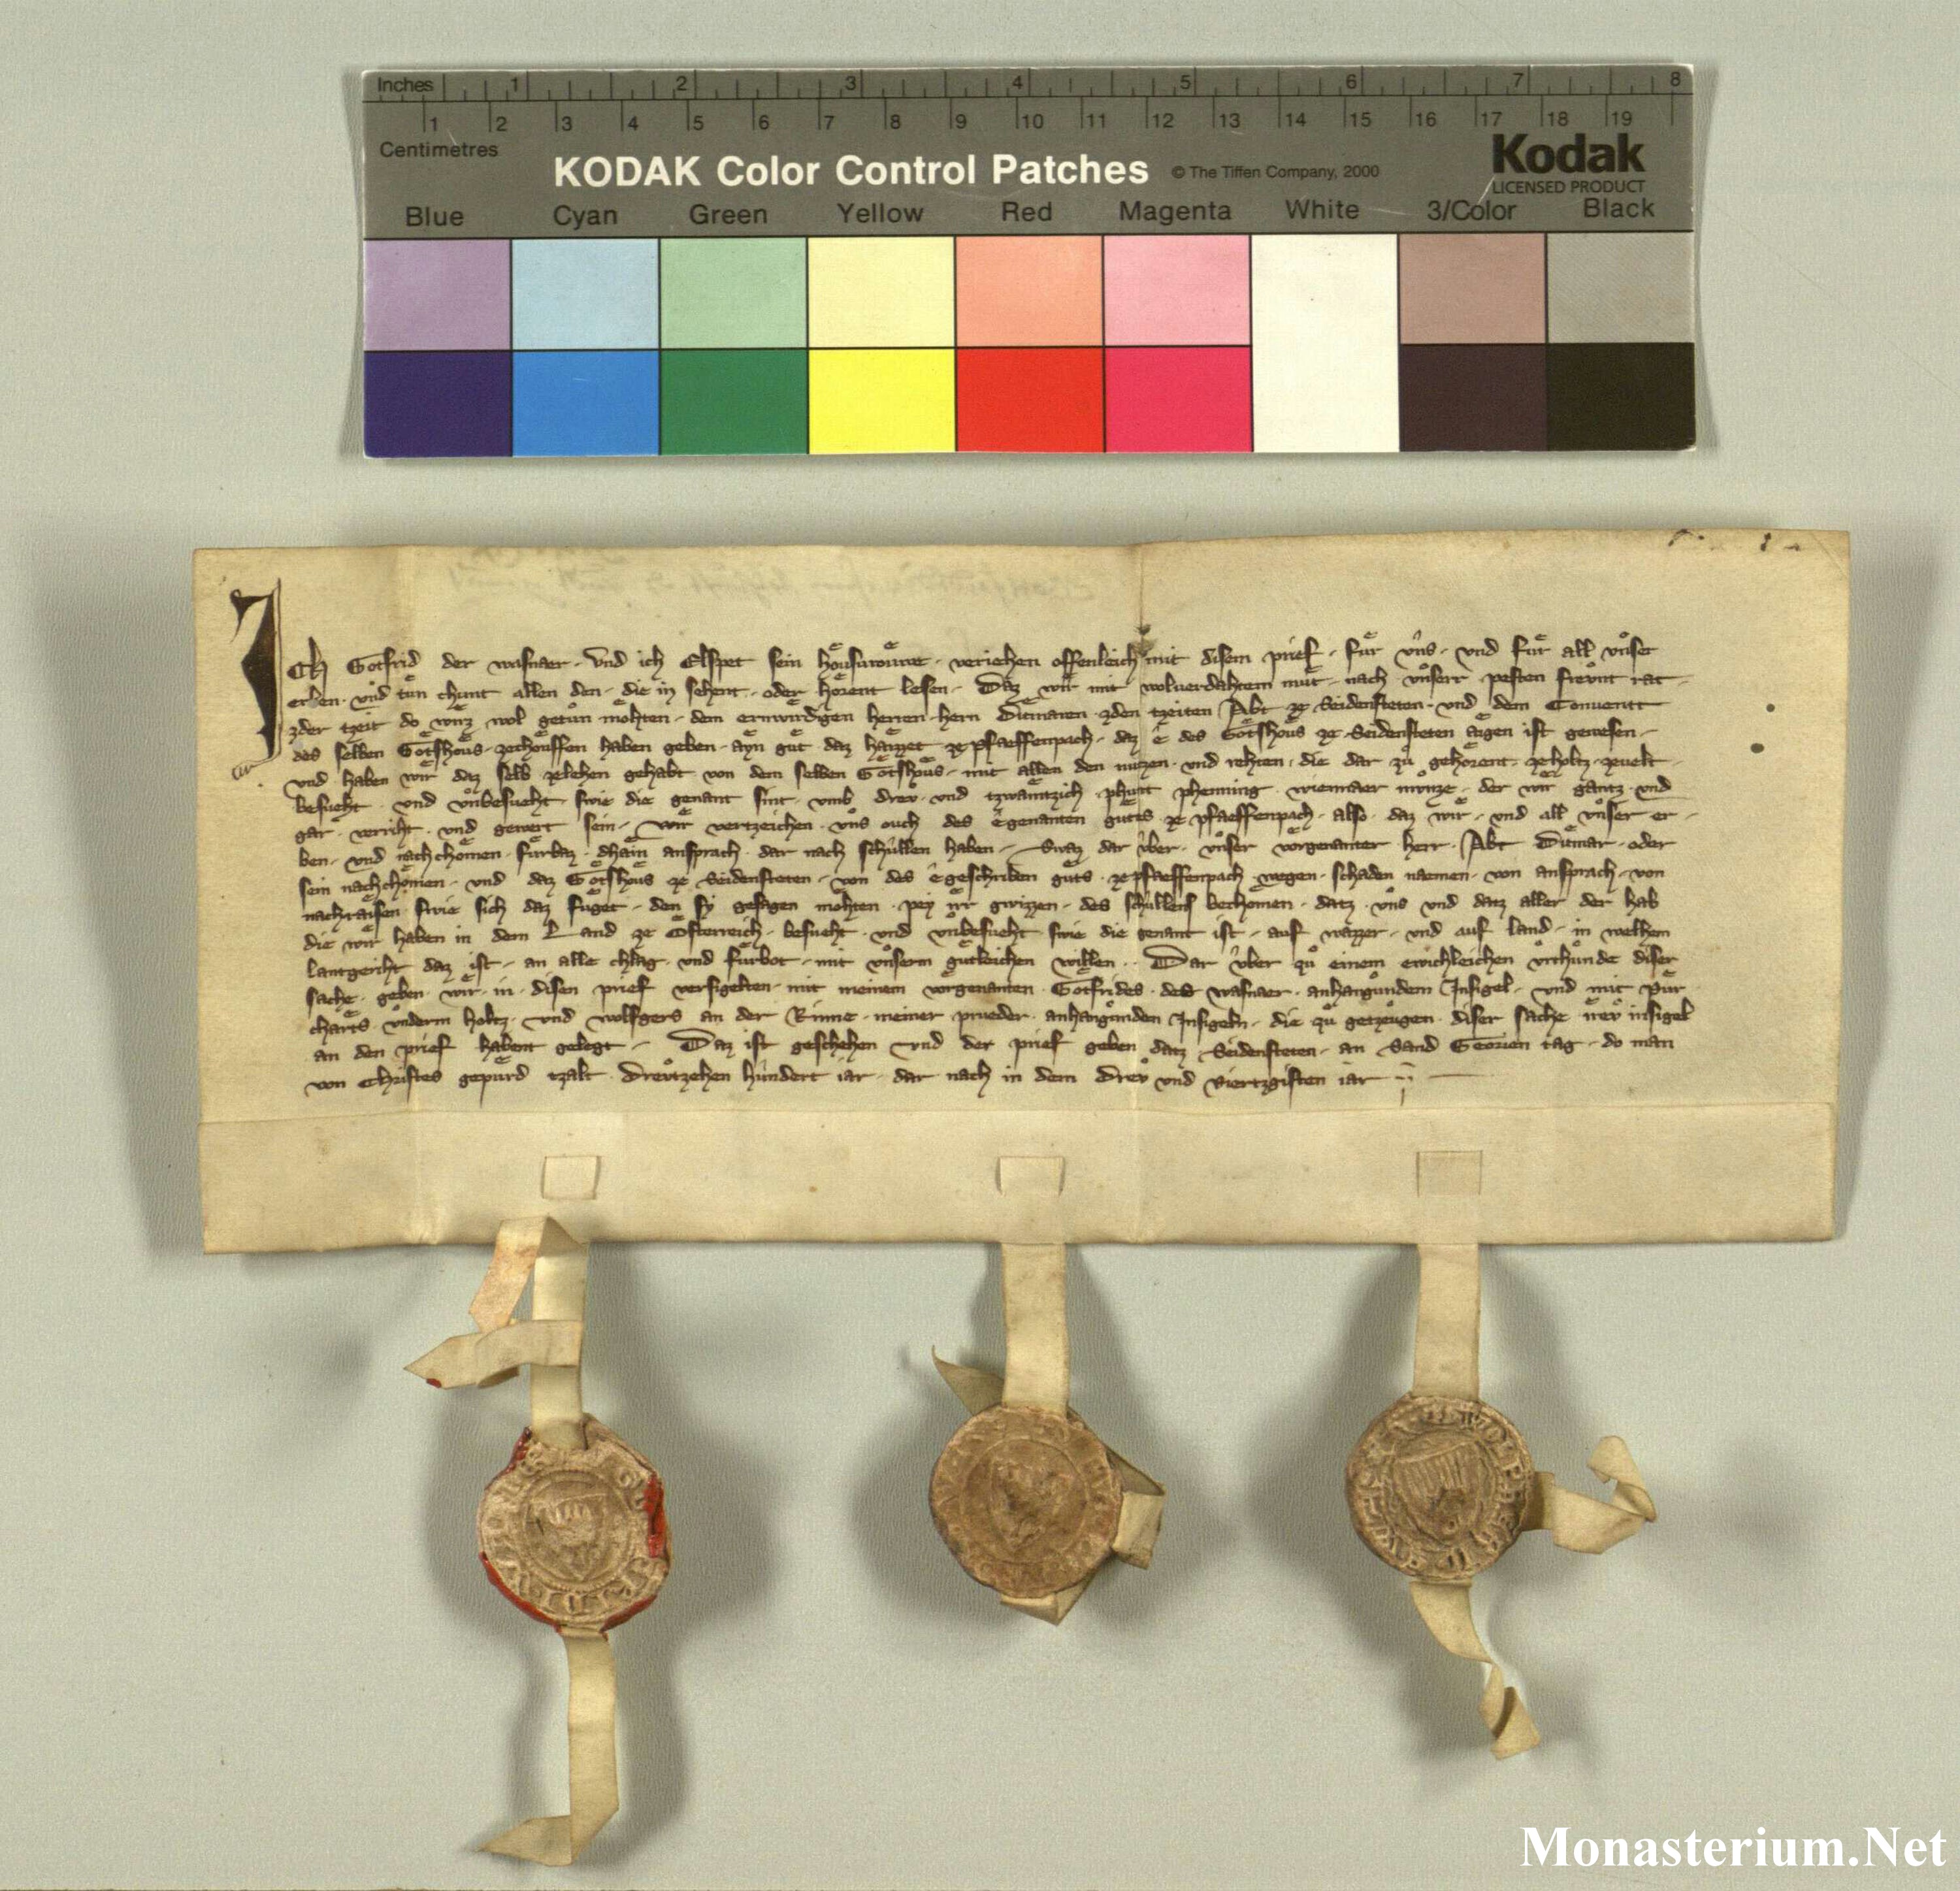 Inches 1 2 3 4 5 6 7 8
1 2 3 4 5 6 7 8 9 10 11 12 13 14 15 16 17 18 19
Centimetres
KODAK Color Control Patches © The Tiffen Company, 2000 Kodak
LICENSED PRODUCT
Blue Cyan Green Yellow Red Magenta White 3/Color Black
ICh Gotfrid der wasnaer · Vnd ich Elspet sein hoͤusurouwe · veriehen offenleich mit disem prief · fuͤr vͦns · vnd fuͤr all vͦnser
erben · vnd tuͤn chunt allen den · die in sehent · oder hoͤrent lesen · Daz wir mit wolverdahtem muͤt · nach vͦnserr pesten freͦunt rat ·
zder tzeit do wirz wol getuͦn moͤhten · dem erwirdigen herren hern Ditmaren zden tzeiten Abt ze Seidensteten · vnd dem Conuent
des selben Gotshoͤus · zechouffen haben geben · ayn guͤt daz haizzet ze pfaeffenpach · daz ê des Gotshoͤus ze Seidensteten aigen ist gewesen ·
vnd haben wir daz selb zelehen gehabt von dem selben Gotshoͤus · mit allen den nuzen · vnd rehten · die dar zuͤ gehoͤrent · zeholtz · zevelt ·
besueht · vnd vͦnbesueht · swie die genant sint · vmb drev · vnd tzwaintzich · phunt phenning · wiennaer muͦnze · der wir gantz · vnd
gar · verriht · vnd gewert sein · wir vertzeichen · vͦns ouch des êgenanten guͤtts ze pfaeffenpach · also · daz wir · vnd all vͦnser er ·
ben · vnd nachchomen · fuͤrbaz · dhain ansprach · dar nach schuͤllen haben · Swaz dar vͤber · vͦnser vorgenanter herr · Abt Ditmar · oder
sein nachchoͤmen · vnd daz Gotshoͤus ze Seidensteten · von des êgeschriben guͤts · ze pfaeffenpach wegen · schaden naemen · von ansprach · von
nachraisen swie sich daz fuͤget · den sy gesagen moͤhten · pey irr gwizzen · des schuͤllens bechomen · datz vͦns vnd datz aller der hab
die wir haben in dem Land ze Osterreich · besueht · vnd vͦnbesueht swie die genant ist · auf wazzer · vnd auf land · in welhem
lantgeriht daz ist · an alle chlag · vnd fuͤrbot · mit vͦnserm guͤtleichen willen · Dar vͤber zuͦ einem ewichleichen vͦrchuͦnde diser
sache · geben · wir · in · disen prief versigelten · mit meinem vorgenanten · Gotfrides · des wasnaer · anhangundem Insigel · vnd mit Puͤr
charts vͦnderm holtz · vnd wolfgers an der Rinne · meiner prueder · anhangunden Insigeln · die zuͦ getzeugen · diser sache irev insigel
an den prief habent gelegt · Daz ist geschehen vnd der prief geben datz Seidensteten · an Sand Georien tag · do man
von Christes gepuͤrd tzalt · Dreutzehen huͤndert iar · dar nach in dem Drev vnd Viertzgisten iar
Monasterium.Net